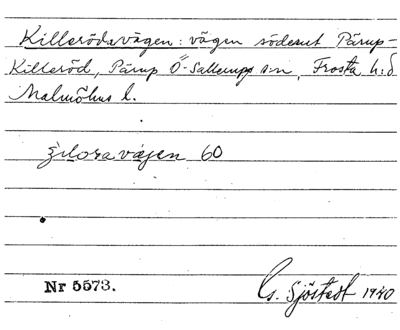 Killerödsvägen: vägen söderut Pärup-
Killeröd, Pärup Ö-Sallerups s:n, Frosta h:d
Malmöhus l.
vägen 60
Nr 5573.
G. Sjöstedt 1940